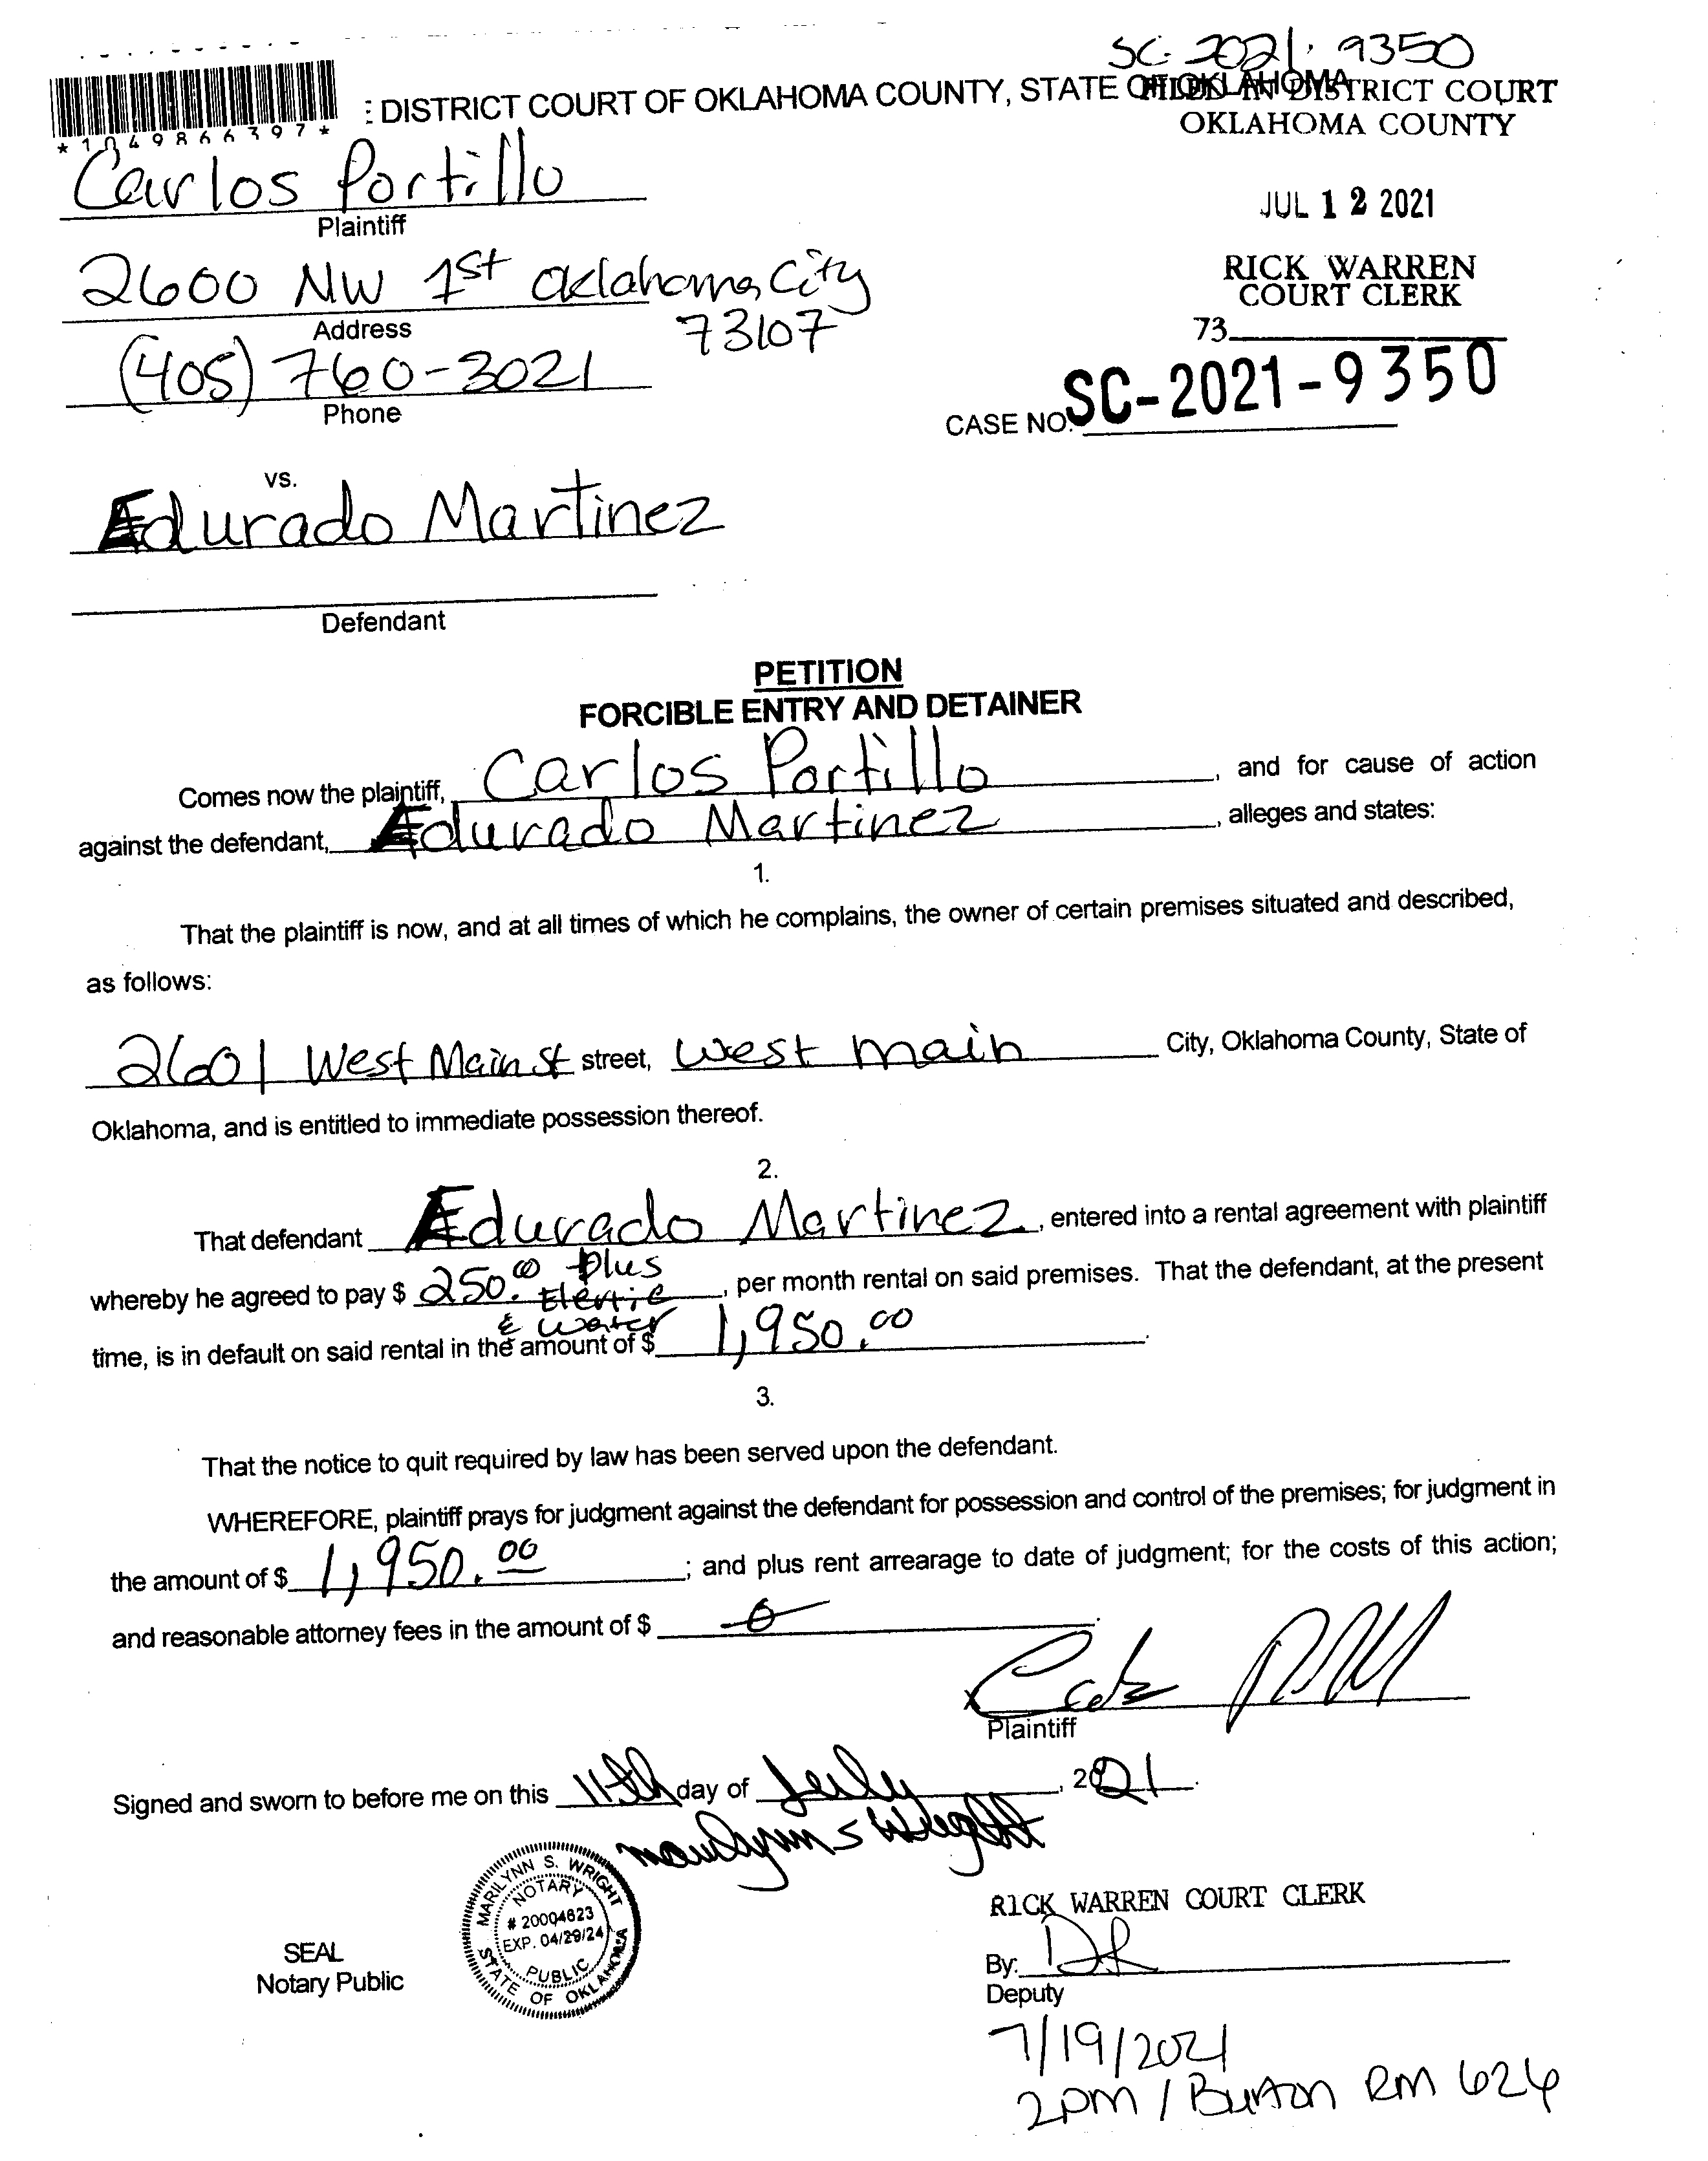 SC-2021-9350
: DISTRICT COURT OF OKLAHOMA COUNTY, STATE OF OKLAHOMA
FILED IN DISTRICT COURT
OKLAHOMA COUNTY
*1049866397*
Carlos Portillo
Plaintiff
JUL 12 2021
2600 NW 1st Oklahoma City
73107
Address
RICK WARREN
COURT CLERK
73
(405) 760-3021
Phone
CASE NO. SC-2021-9350
vs.
Edurado Martinez
Defendant
PETITION
FORCIBLE ENTRY AND DETAINER
Comes now the plaintiff, Carlos Portillo, and for cause of action
against the defendant, Edurado Martinez, alleges and states:
1.
That the plaintiff is now, and at all times of which he complains, the owner of certain premises situated and described,
as follows:
2601 West Main St street, West main City, Oklahoma County, State of
Oklahoma, and is entitled to immediate possession thereof.
2.
That defendant Edurado Martinez, entered into a rental agreement with plaintiff
whereby he agreed to pay $ 250.00 plus Elertic & water, per month rental on said premises. That the defendant, at the present
time, is in default on said rental in the amount of $ 1,950.00.
3.
That the notice to quit required by law has been served upon the defendant.
WHEREFORE, plaintiff prays for judgment against the defendant for possession and control of the premises; for judgment in
the amount of $ 1,950.00; and plus rent arrearage to date of judgment; for the costs of this action;
and reasonable attorney fees in the amount of $ 0.
x
Plaintiff
Signed and sworn to before me on this 11th day of July, 2021.
Marilynn S Wright
MARILYNN S. WRIGHT
NOTARY
# 20004823
EXP. 04/29/24
PUBLIC
STATE OF OKLAHOMA
SEAL
Notary Public
RICK WARREN COURT CLERK
By:
Deputy
7/19/2021
2pm / Burton RM 624